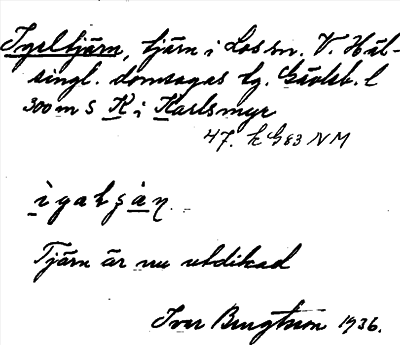 Igeltjärn, tjärn i Los sn. V. Häl-
singl. domsagas tg. Gävleb. l
300 m S K i Karlsmyr
47. k G83 NM
ìgalṣàn.
Tjärn är nu utdikad
Iver Bengtsson 1936.